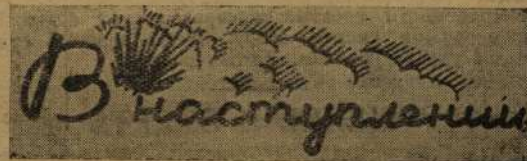 В наступлении